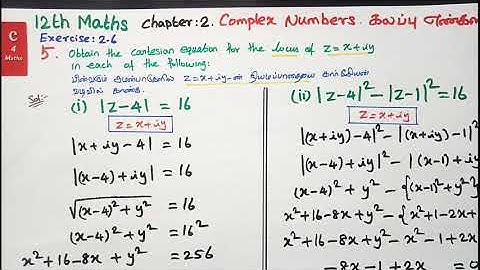 C
4
Maths
12th Maths chapter:2. Complex Numbers. கலப்பு எண்கள்
Exercise:2.6
5. Obtain the cartesian equation for the locus of z=x+iy
in each of the following:
z=x+iy-ன்
Sol:-
(i) |z-4| = 16
z=x+iy
|x+iy-4| = 16
|(x-4)+iy| = 16
√(x-4)²+y² = 16
(x-4)²+y² = 16²
x²+16-8x+y² = 256
(ii) |z-4|²-|z-1|²=16
z=x+iy
|(x+iy)-4|²-|(x+iy)-1|²
|(x-4)+iy|²-|(x-1)+iy
(x-4)²+y²-{(x-1)²+y²}
x²+16-8x+y²-{x²+1-2x+
x²+16-8x+y²-x²-1+2x
-8x-1+2x =0